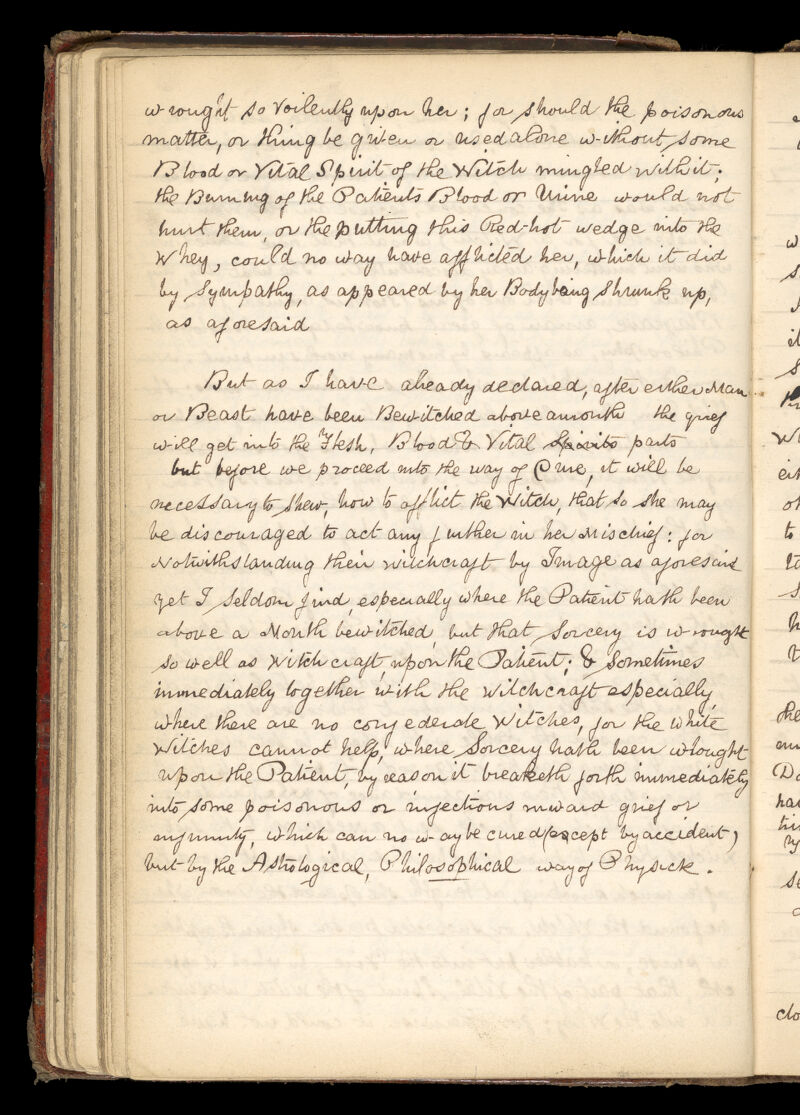 wrought so voilently upon her; for should the poisonous
matter, or thing be given or used alone without some
Blood or Vital Spirit of the Witch mingled with it;
the Burning of the Patients Blood or Urine would not
hurt them, or the putting this Red-hot wedge into the
Whey, could no way have afflicted her, which it did
by Sympathy, as appeared by her Body being Shrunk up,
as aforesaid
But as I have already declared, after either Man
or Beast have been Bewitched above a month the grief
will get into the Flesh, Blood & Vital Spirits parts
but before we proceed into the way of Cure, it will be
necessary to shew, how to afflict the Witch, that so she may
be discouraged to act any further in her Mischief: for
Notwithstanding their witchcraft by Image as aforesaid
yet I Seldom find, especially where the Patient hath been
above a Month bewitched, but that Sorcery is wrought
so well as Witchcraft, upon the Patient; & Sometimes
immediately together with the witchcraft especially,
where there are no confederate Witches, for the white
Witches cannot help, where Sorcery hath been wrought
upon the Patient, by reason it breaketh forth immediately
into some poisonous or infectious inward grief or
infirmity, which can no way be cured (except by accident)
but by the Astrological, Philosophical way of Physick.